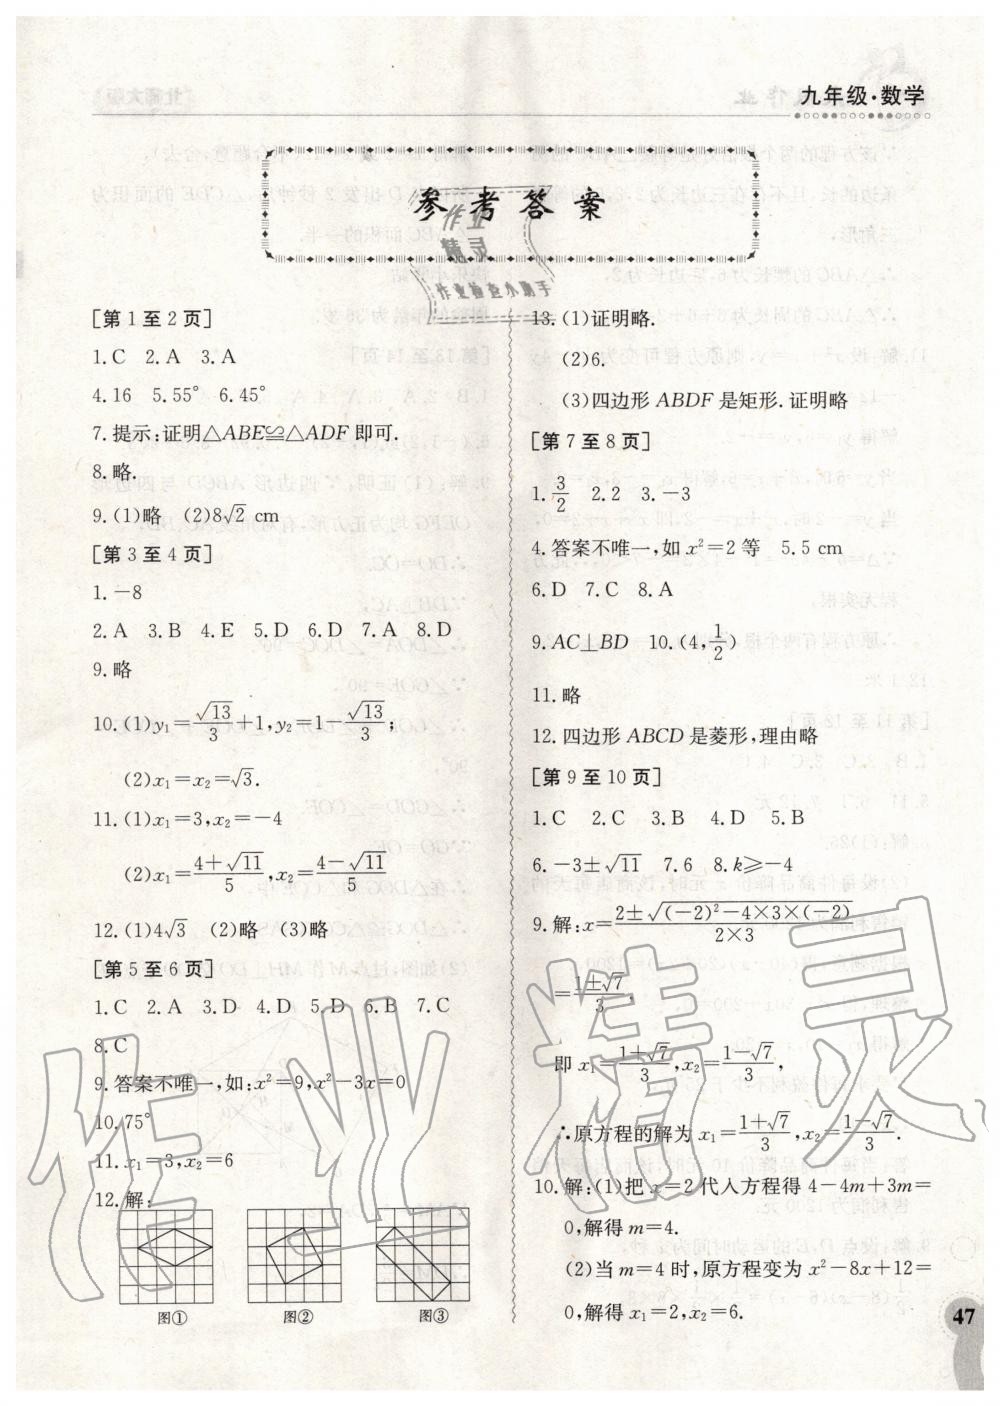 九年级·数学
参考答案
作业
精灵
作业检查小助手
[第1至2页]
1.C 2.A 3.A
4.16 5.55° 6.45°
7.提示:证明△ABE≌△ADF即可.
8.略.
9.(1)略 (2)8√2 cm
[第3至4页]
1.－8
2.A 3.B 4.E 5.D 6.D 7.A 8.D
9.略
10.(1)y₁=√13/3+1,y₂=1－√13/3;
(2)x₁=x₂=√3.
11.(1)x₁=3,x₂=－4
(2)x₁=(4+√11)/5,x₂=(4－√11)/5
12.(1)4√3 (2)略 (3)略
[第5至6页]
1.C 2.A 3.D 4.D 5.D 6.B 7.C
8.C
9.答案不唯一,如:x²=9,x²－3x=0
10.75°
11.x₁=3,x₂=6
12.解:
图① 图② 图③
13.(1)证明略.
(2)6.
(3)四边形ABDF是矩形.证明略
[第7至8页]
1.3/2 2.2 3.－3
4.答案不唯一,如x²=2等 5.5 cm
6.D 7.C 8.A
9.AC⊥BD 10.(4,1/2)
11.略
12.四边形ABCD是菱形,理由略
[第9至10页]
1.C 2.C 3.B 4.D 5.B
6.－3±√11 7.6 8.k≥－4
9.解:x=(2±√((－2)²－4×3×(－2)))/(2×3)
=(1±√7)/3,
即x₁=(1+√7)/3,x₂=(1－√7)/3,
∴原方程的解为x₁=(1+√7)/3,x₂=(1－√7)/3.
10.解:(1)把x=2代入方程得4－4m+3m=
0,解得m=4.
(2)当m=4时,原方程变为x²－8x+12=
0,解得x₁=2,x₂=6.
47
作业精灵